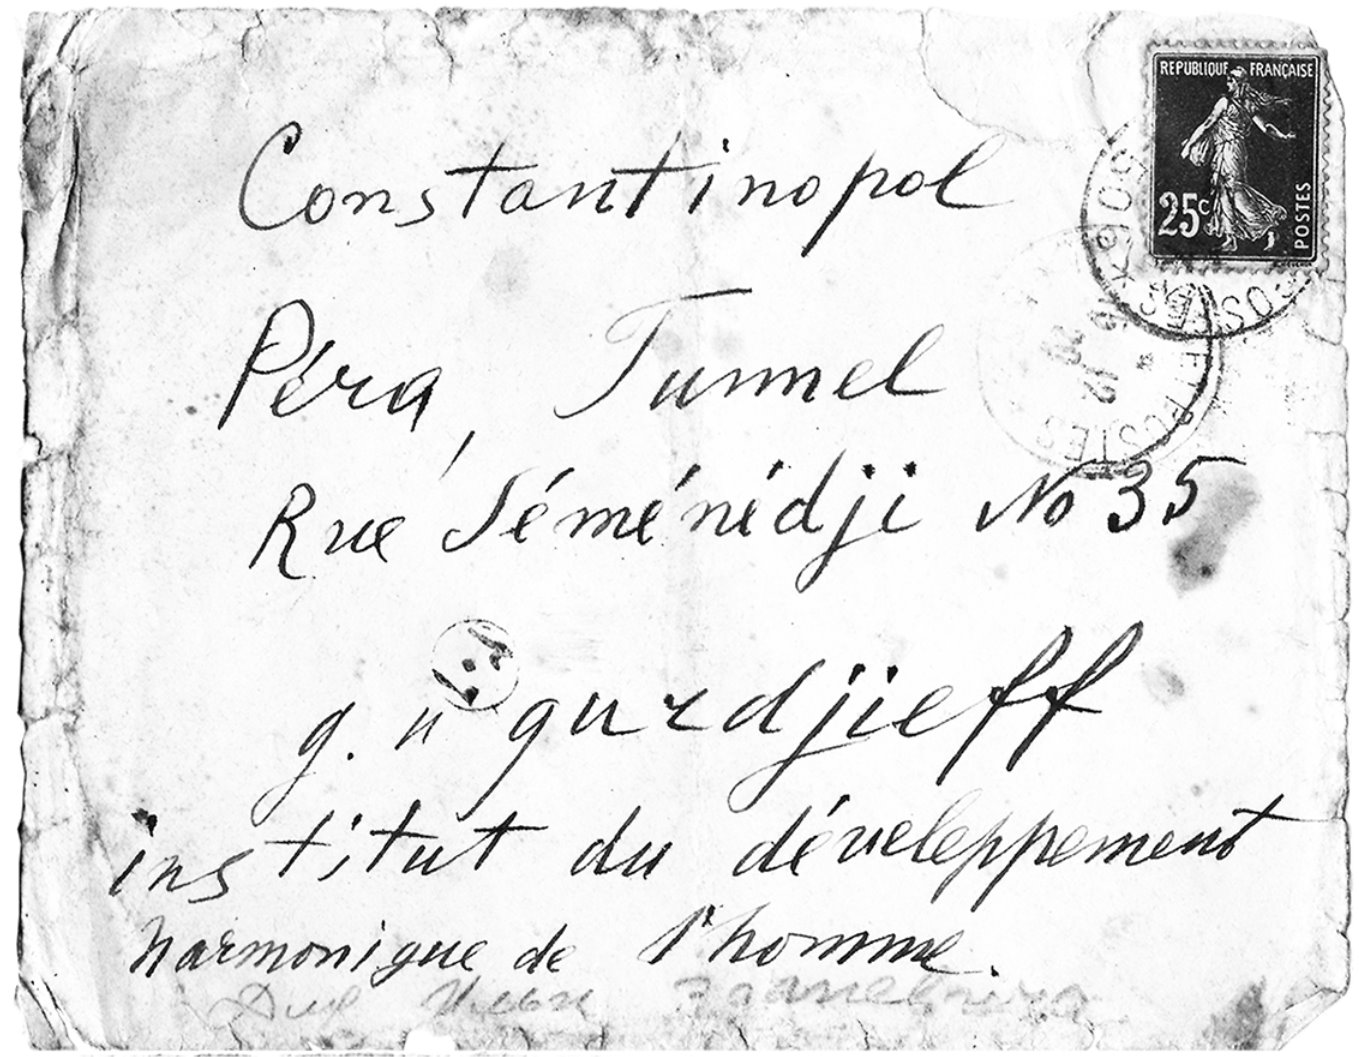 REPUBLIQUE FRANÇAISE
25c
POSTES
Constantinopol
Péra, Tunnel
Rue Séménédji No 35
g. u gurdjieff
institut du développement
harmonique de l'homme.